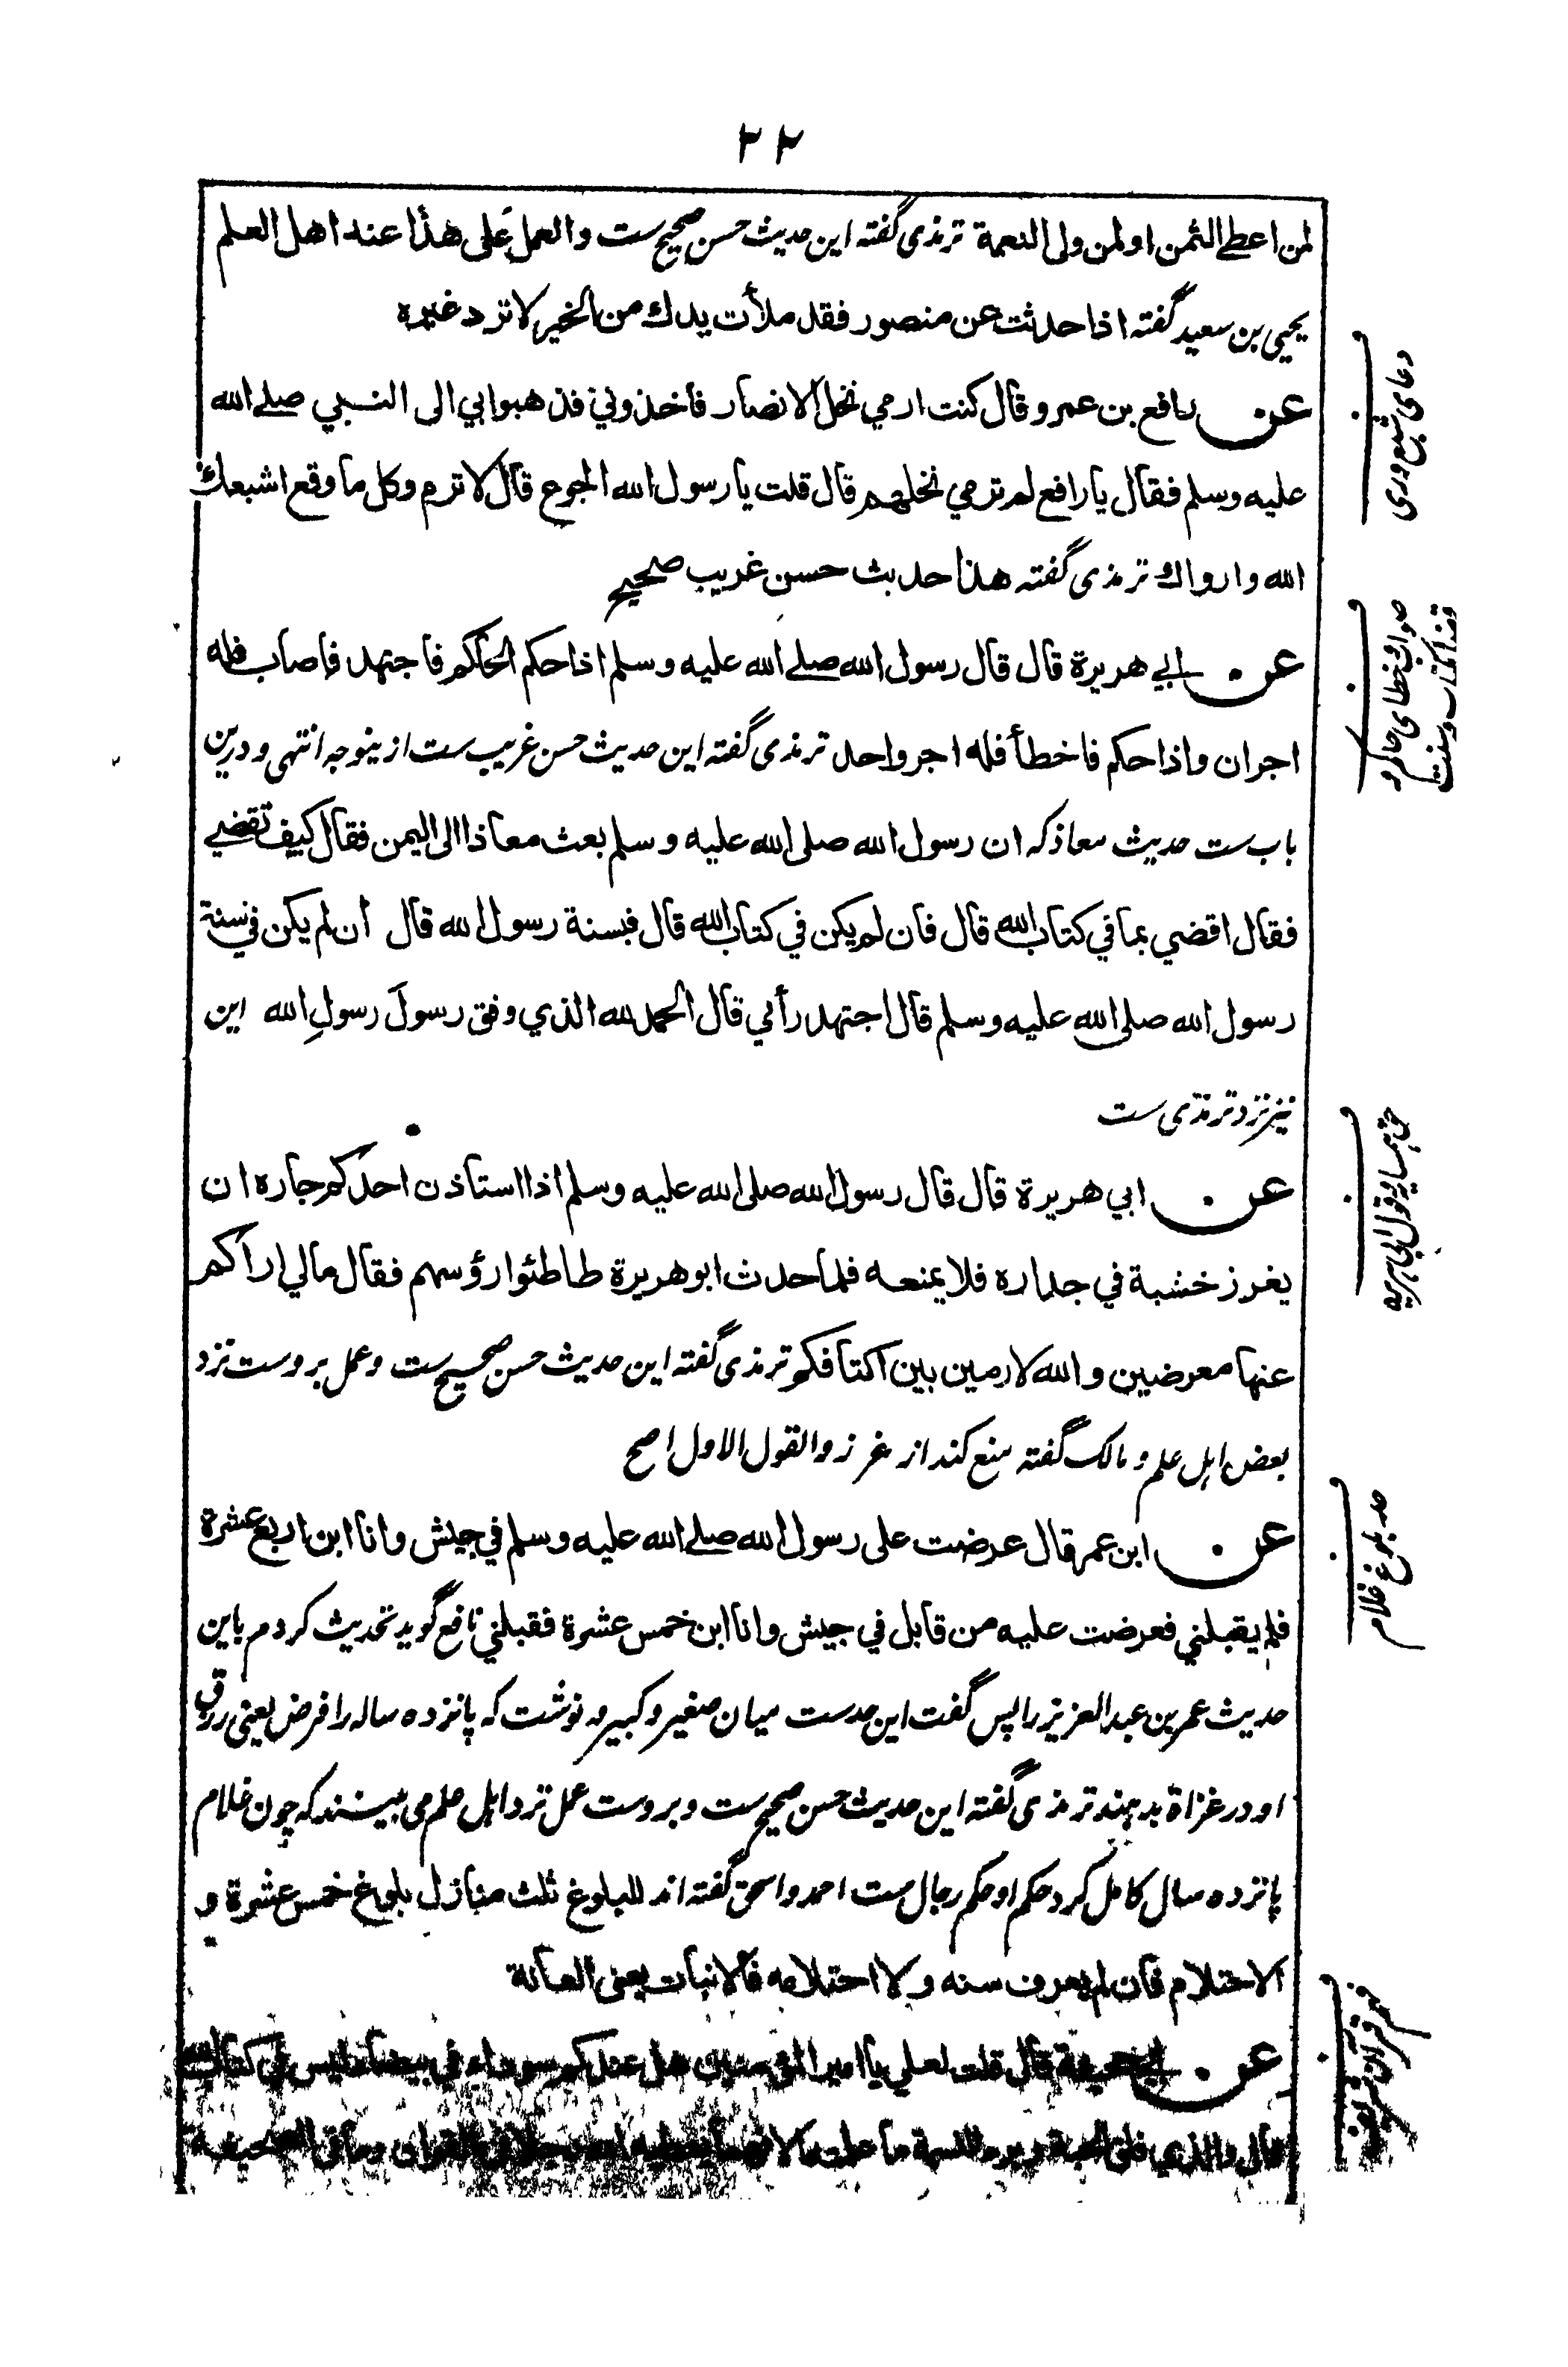 ۲۲
لمن اعطی الثمن او لمن ولی النعمة ترمذی گفته این حدیث حسن صحیح ست والعمل علی هذا عند اهل العلم
یحیی بن سعید گفته اذا حدثت عن منصور فقد ملأت یدك من الخیر لا ترد غیره
عن رافع بن عمرو قال کنت ارمي نخل الانصار فاخذوني فذهبوابي الی النبي صلے الله
علیه وسلم فقال یا رافع لم ترمي نخلهم قال قلت یا رسول الله الجوع قال لا ترم وکل ما وقع اشبعك
الله وارواك ترمذی گفته هذا حدیث حسن غریب صحیح
عن ابي هریرة قال قال رسول الله صلے الله علیه وسلم اذا حکم الحاکم فاجتهد فاصاب فله
اجران واذا حکم فاخطأ فله اجر واحد ترمذی گفته این حدیث حسن غریب ست از ینوجه انتهی و درین
باب ست حدیث معاذ که ان رسول الله صلی الله علیه وسلم بعث معاذا الی الیمن فقال کیف تقضي
فقال اقضي بما في کتاب الله قال فان لم یکن في کتاب الله قال فبسنة رسول الله قال ان لم یکن في سنة
رسول الله صلی الله علیه وسلم قال اجتهد رأیي قال الحمد لله الذي وفق رسولَ رسولِ الله این
نیز نزد ترمذی ست
عن ابي هریرة قال قال رسول الله صلی الله علیه وسلم اذا استاذن احدکم جاره ان
یغرز خشبة في جداره فلا یمنعه فلما حدث ابو هریرة طاطئوا رؤسهم فقال مالي اراکم
عنها معرضین والله لارمین بین اکتافکم ترمذی گفته این حدیث حسن صحیح ست وعمل بروست نزد
بعض اهل علم و مالک گفته منع کند از غرز والقول الاول اصح
عن ابن عمر قال عرضت علی رسول الله صلے الله علیه وسلم في جیش وانا ابن اربع عشرة
فلم یقبلني فعرضت علیه من قابل في جیش وانا ابن خمس عشرة فقبلني نافع گوید تحدیث کردم باین
حدیث عمر بن عبد العزیز را پس گفت این حدست میان صغیر و کبیر و نوشت که پانزده ساله را فرض یعنی رزق
او در غزاة بدهند ترمذی گفته این حدیث حسن صحیح ست و بروست عمل نزد اهل علم می بینند که چون غلام
پانزده سال کامل کرد حکم او حکم رجال ست احمد و اسحق گفته اند للبلوغ ثلث منازل بلوغ خمس عشرة و
الاحتلام فان لم یعرف سنه ولا احتلامه فالانبات یعنی العانة
عن ابي جحیفة قال قلت لعلي یا امیر المؤمنین هل عندکم سوداء في بیضاء لیس في کتاب الله
قال والذي فلق الحبة وبرء النسمة ما علمته الا القران وما في الصحیفة
دعای شبع و ری
صواب و خطای حاکم و
قضا بکتاب و سنت
حق همسایه و قول ابی هریره
حد بلوغ غلام